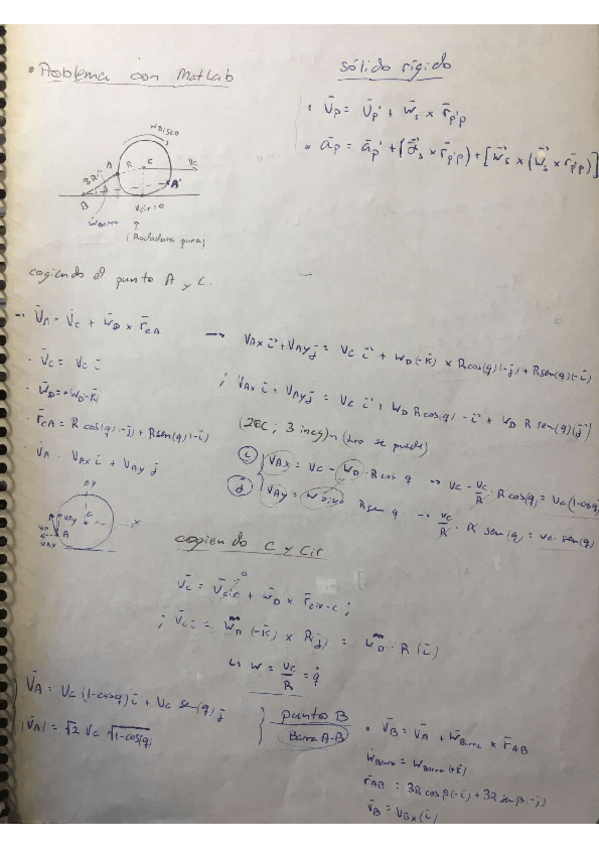 • Problema con Matlab
sólido rígido
• v̄p = v̄p' + w̄s × r̄p'p
• āp = āp' + (ᾱs × r̄p'p) + [w̄s × (w̄s × r̄p'p)]
WDisco
A R C vc
3R A'
B
WBarra
vcir = 0
↑
(Rodadura pura)
cogiendo el punto A y C.
→ v̄A = v̄c + w̄D × r̄cA
· v̄c = vc ī
· w̄D = +wD(-k̄)
· r̄cA = R cos(q)(-j̄) + R sen(q)(-ī)
· v̄A = vAx ī + vAy j̄
→ vAx ī + vAy j̄ = vc ī + wD(-k̄) × R cos(q)(-j̄) + R sen(q)(-ī)
; vAx ī + vAy j̄ = vc ī + wD R cos(q) -ī + wD R sen(q)(j̄)
(2EC; 3 incog)
(i) vAx = vc - wD · R cos q → vc - vc/R · R cos(q) = vc (1-cosq)
(j) vAy = wDisco R sen q → vc/R · R sen(q) = vc sen(q)
y
C x
A vAy
vAx
cogiendo C y Cir
v̄c = v̄cir + w̄D × r̄cir-c ;
0
; vc ī = wD (-k̄) × R j̄ = wD · R (ī)
↳ w = vc/R = q̇
v̄A = vc (1-cosq) ī + vc sen(q) j̄
|v̄A| = √2 vc √1-cos(q)
punto B
Barra A-B
• v̄B = v̄A + w̄Barra × r̄AB
w̄Barra = wBarra (+k̄)
r̄AB : 3R cos β(-ī) + 3R sen β(-j̄)
v̄B = vBx (ī)